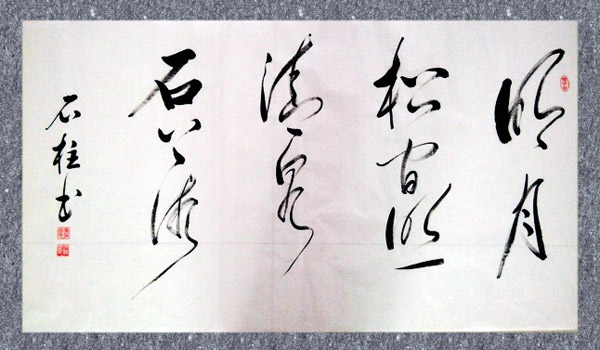 明月
松间照
清泉
石上流
石柱书